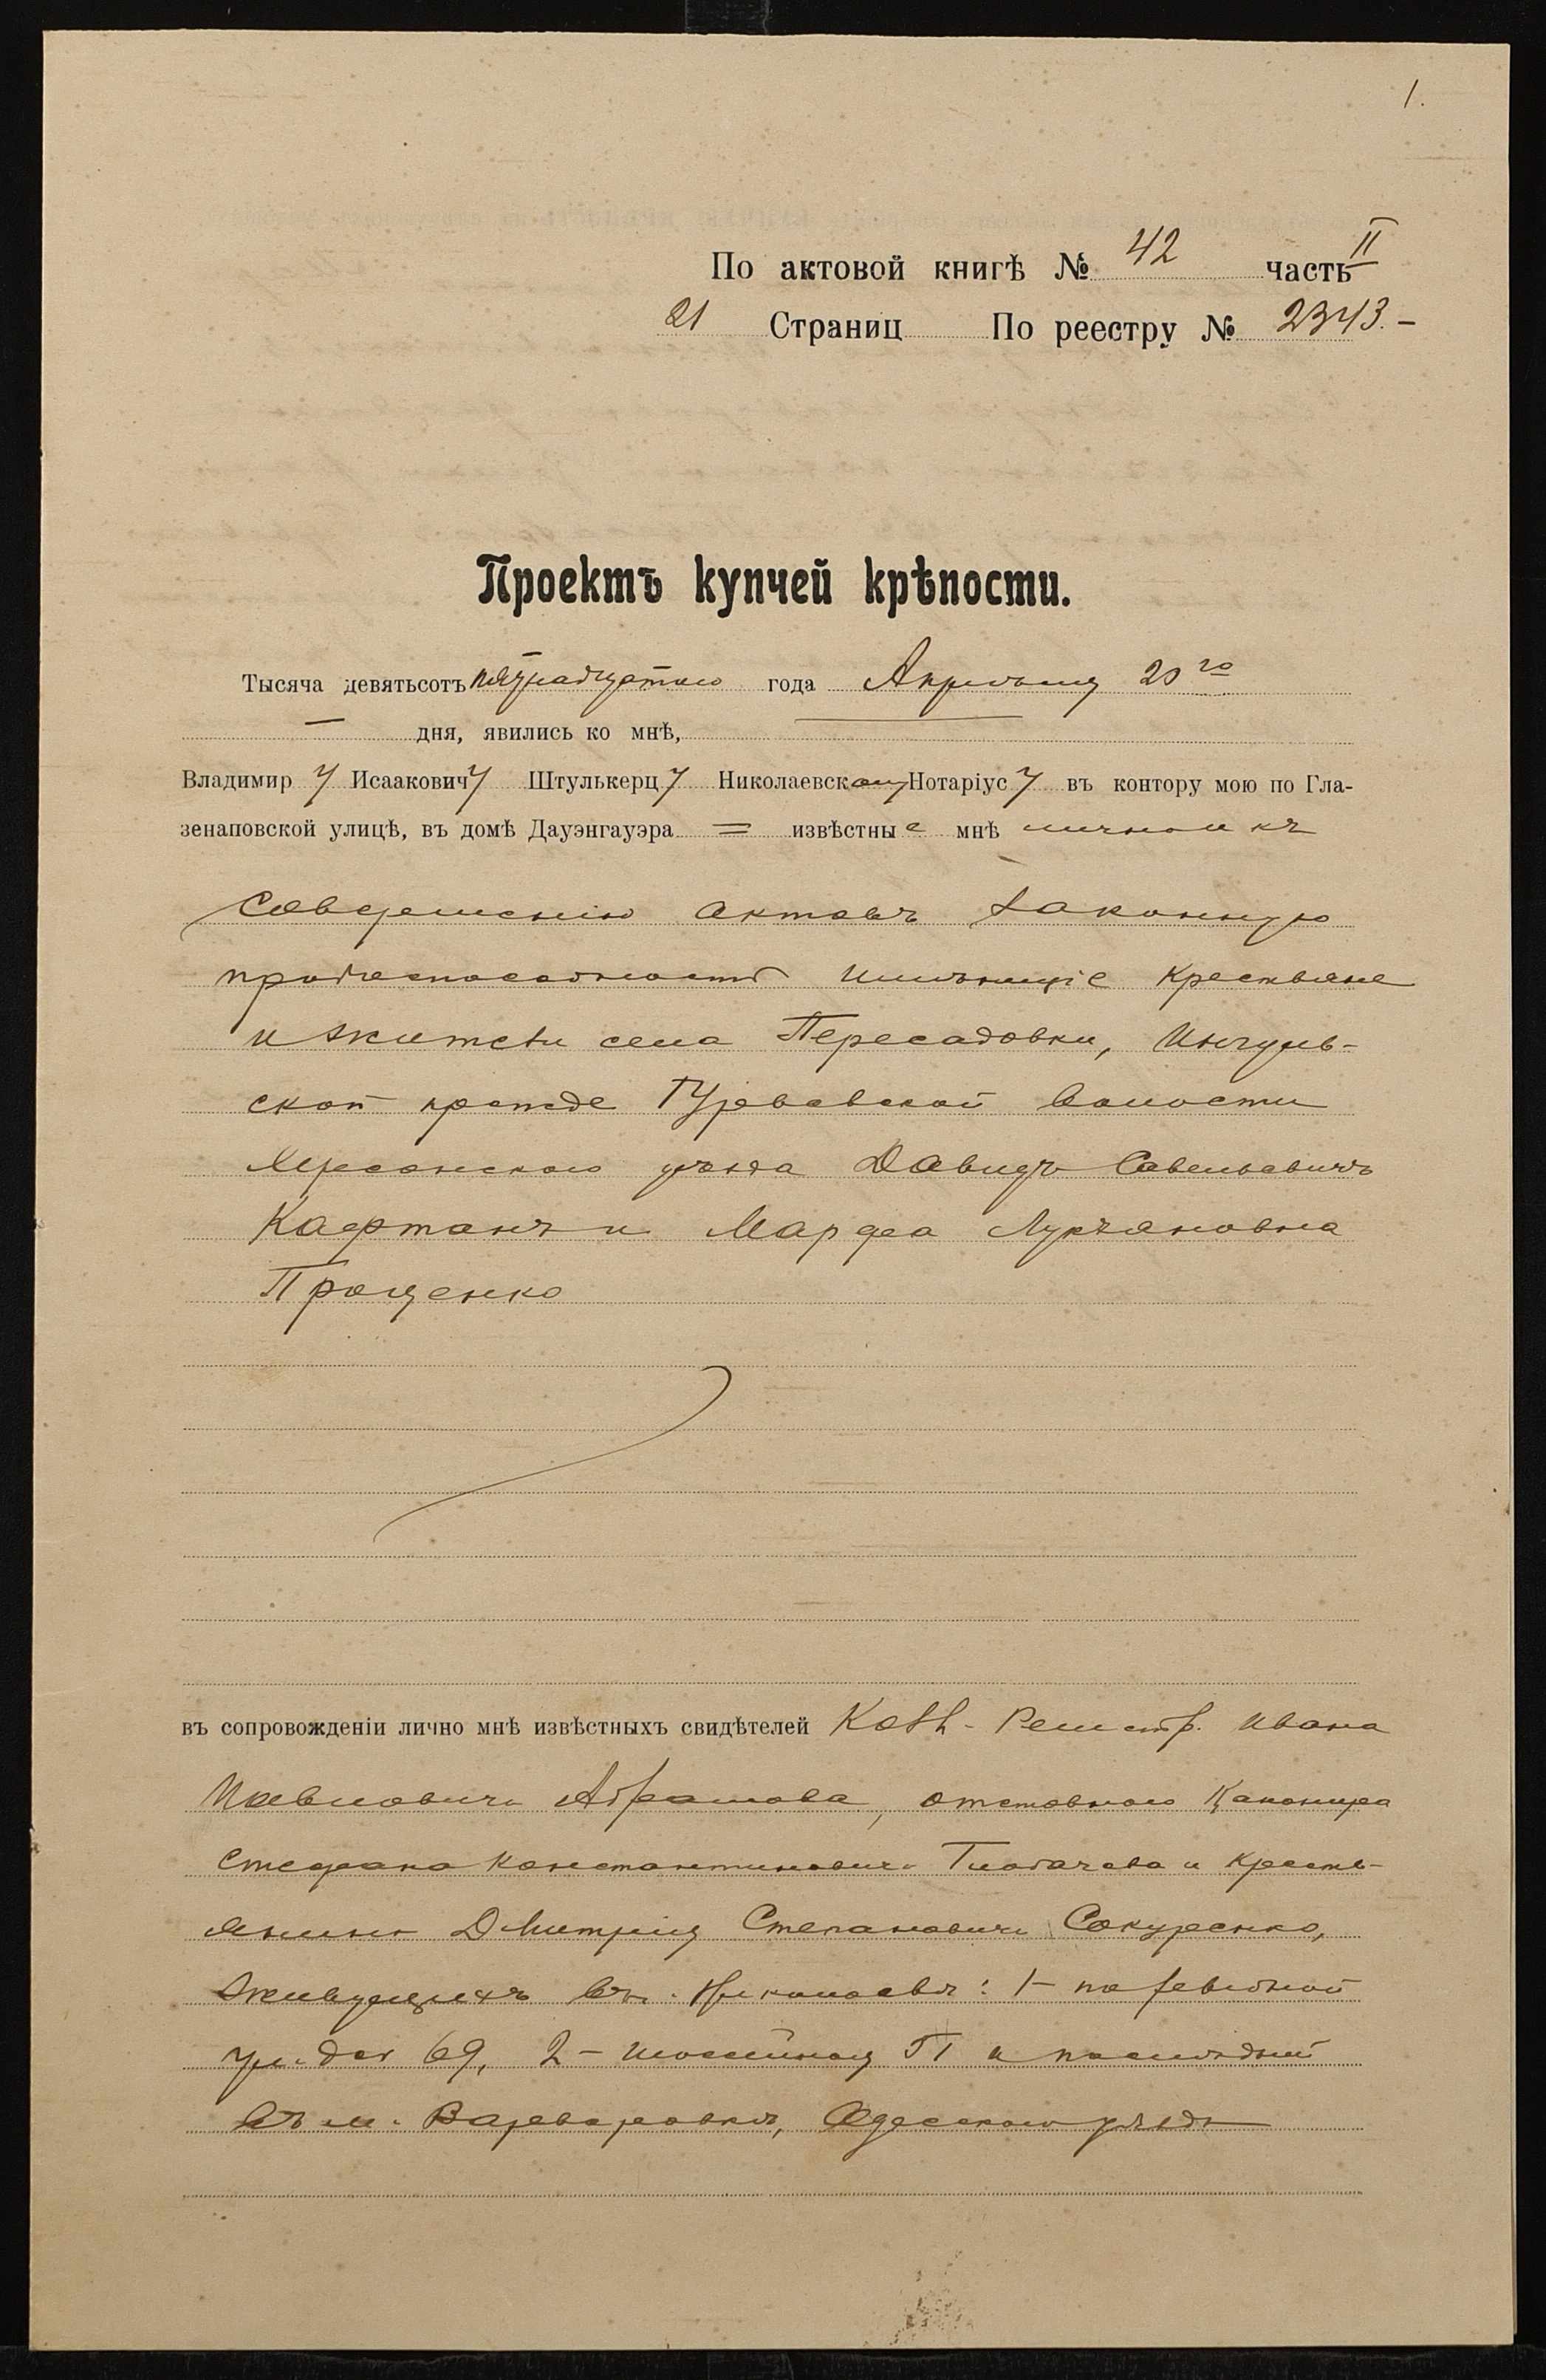 1.
По актовой книгѣ № 42 часть II
21 Страниц По реестру № 2343.-
Проектъ купчей крѣпости.
Тысяча девятьсотъ пятнадцатаго года Апрѣля 20го
дня, явились ко мнѣ,
Владимиру Исааковичу Штулькерцу Николаевскому Нотаріусу въ контору мою по Гла-
зенаповской улицѣ, въ домѣ Дауэнгауэра = извѣстные мнѣ лично и къ
совершенію актовъ законную
правоспособность имѣющіе крестьяне
и жители села Пересадовки, Ингуль-
ской прежде Гурьевской волости
Херсонскаго уѣзда Давидъ Савельевичъ
Кафтанъ и Марфа Лукьяновна
Прощенко
въ сопровожденіи лично мнѣ извѣстныхъ свидѣтелей Колл. Регистр. Ивана
Ивановича Абрамова, отставного Канонира
Стефана Константиновича и кресть-
янина Дмитрія Степановича Сокуренко,
живущихъ въ г. Николаевѣ: 1- по
ул. 69, 2- и послѣдній
въ м. Варваровкѣ, Одесскаго уѣзда